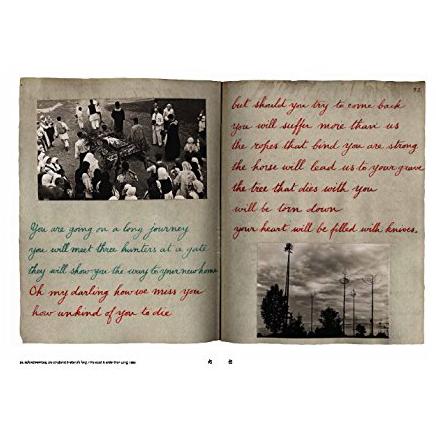 You are going on a long journey
you will meet three hunters at a gate
they will show you the way to your new home
Oh my darling how we miss you
how unkind of you to die
but should you try to come back
you will suffer more than us
the ropes that bind you are strong
the horse will lead us to your grave
the tree that dies with you
will be torn down
your heart will be filled with knives.